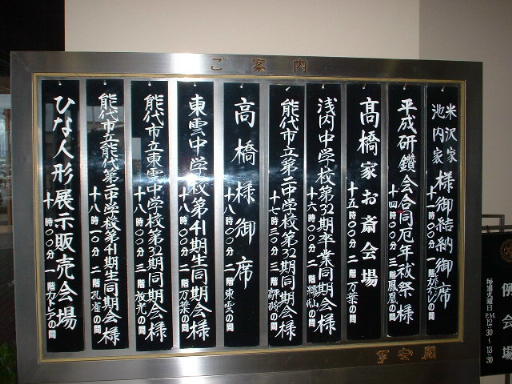 ご案内
米沢家
池内家
様御結納御席
十一時〇〇分 一階
平成研鑽会合同厄年祓祭様
十四時〇〇分 三階 鳳凰の間
髙橋家お斎会場
十五時〇〇分 二階 万葉の間
浅内中学校第32期卒業同期会様
十六時〇〇分 二階 の間
能代市立第一中学校第32期同期会様
十七時三〇分 二階 の間
高橋様御席
十八時〇〇分 二階 東雲の間
東雲中学校第41期生同期会様
十八時〇〇分 二階 万葉の間
能代市立東雲中学校第32期同期会様
十八時〇〇分 一階 放光の間
能代市立能代第二中学校第41期生同期会様
十八時〇〇分 二階 孔雀の間
ひな人形展示販売会場
十時〇〇分 一階 カトレアの間
例会場
毎週火曜日
P.M.12:30~1:30